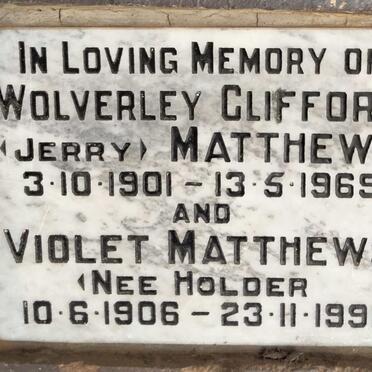 IN LOVING MEMORY OF
WOLVERLEY CLIFFOR
(JERRY) MATTHEW
3·10·1901 – 13·5·1969
AND
VIOLET MATTHEW
(NEE HOLDER
10·6·1906 – 23·11·199